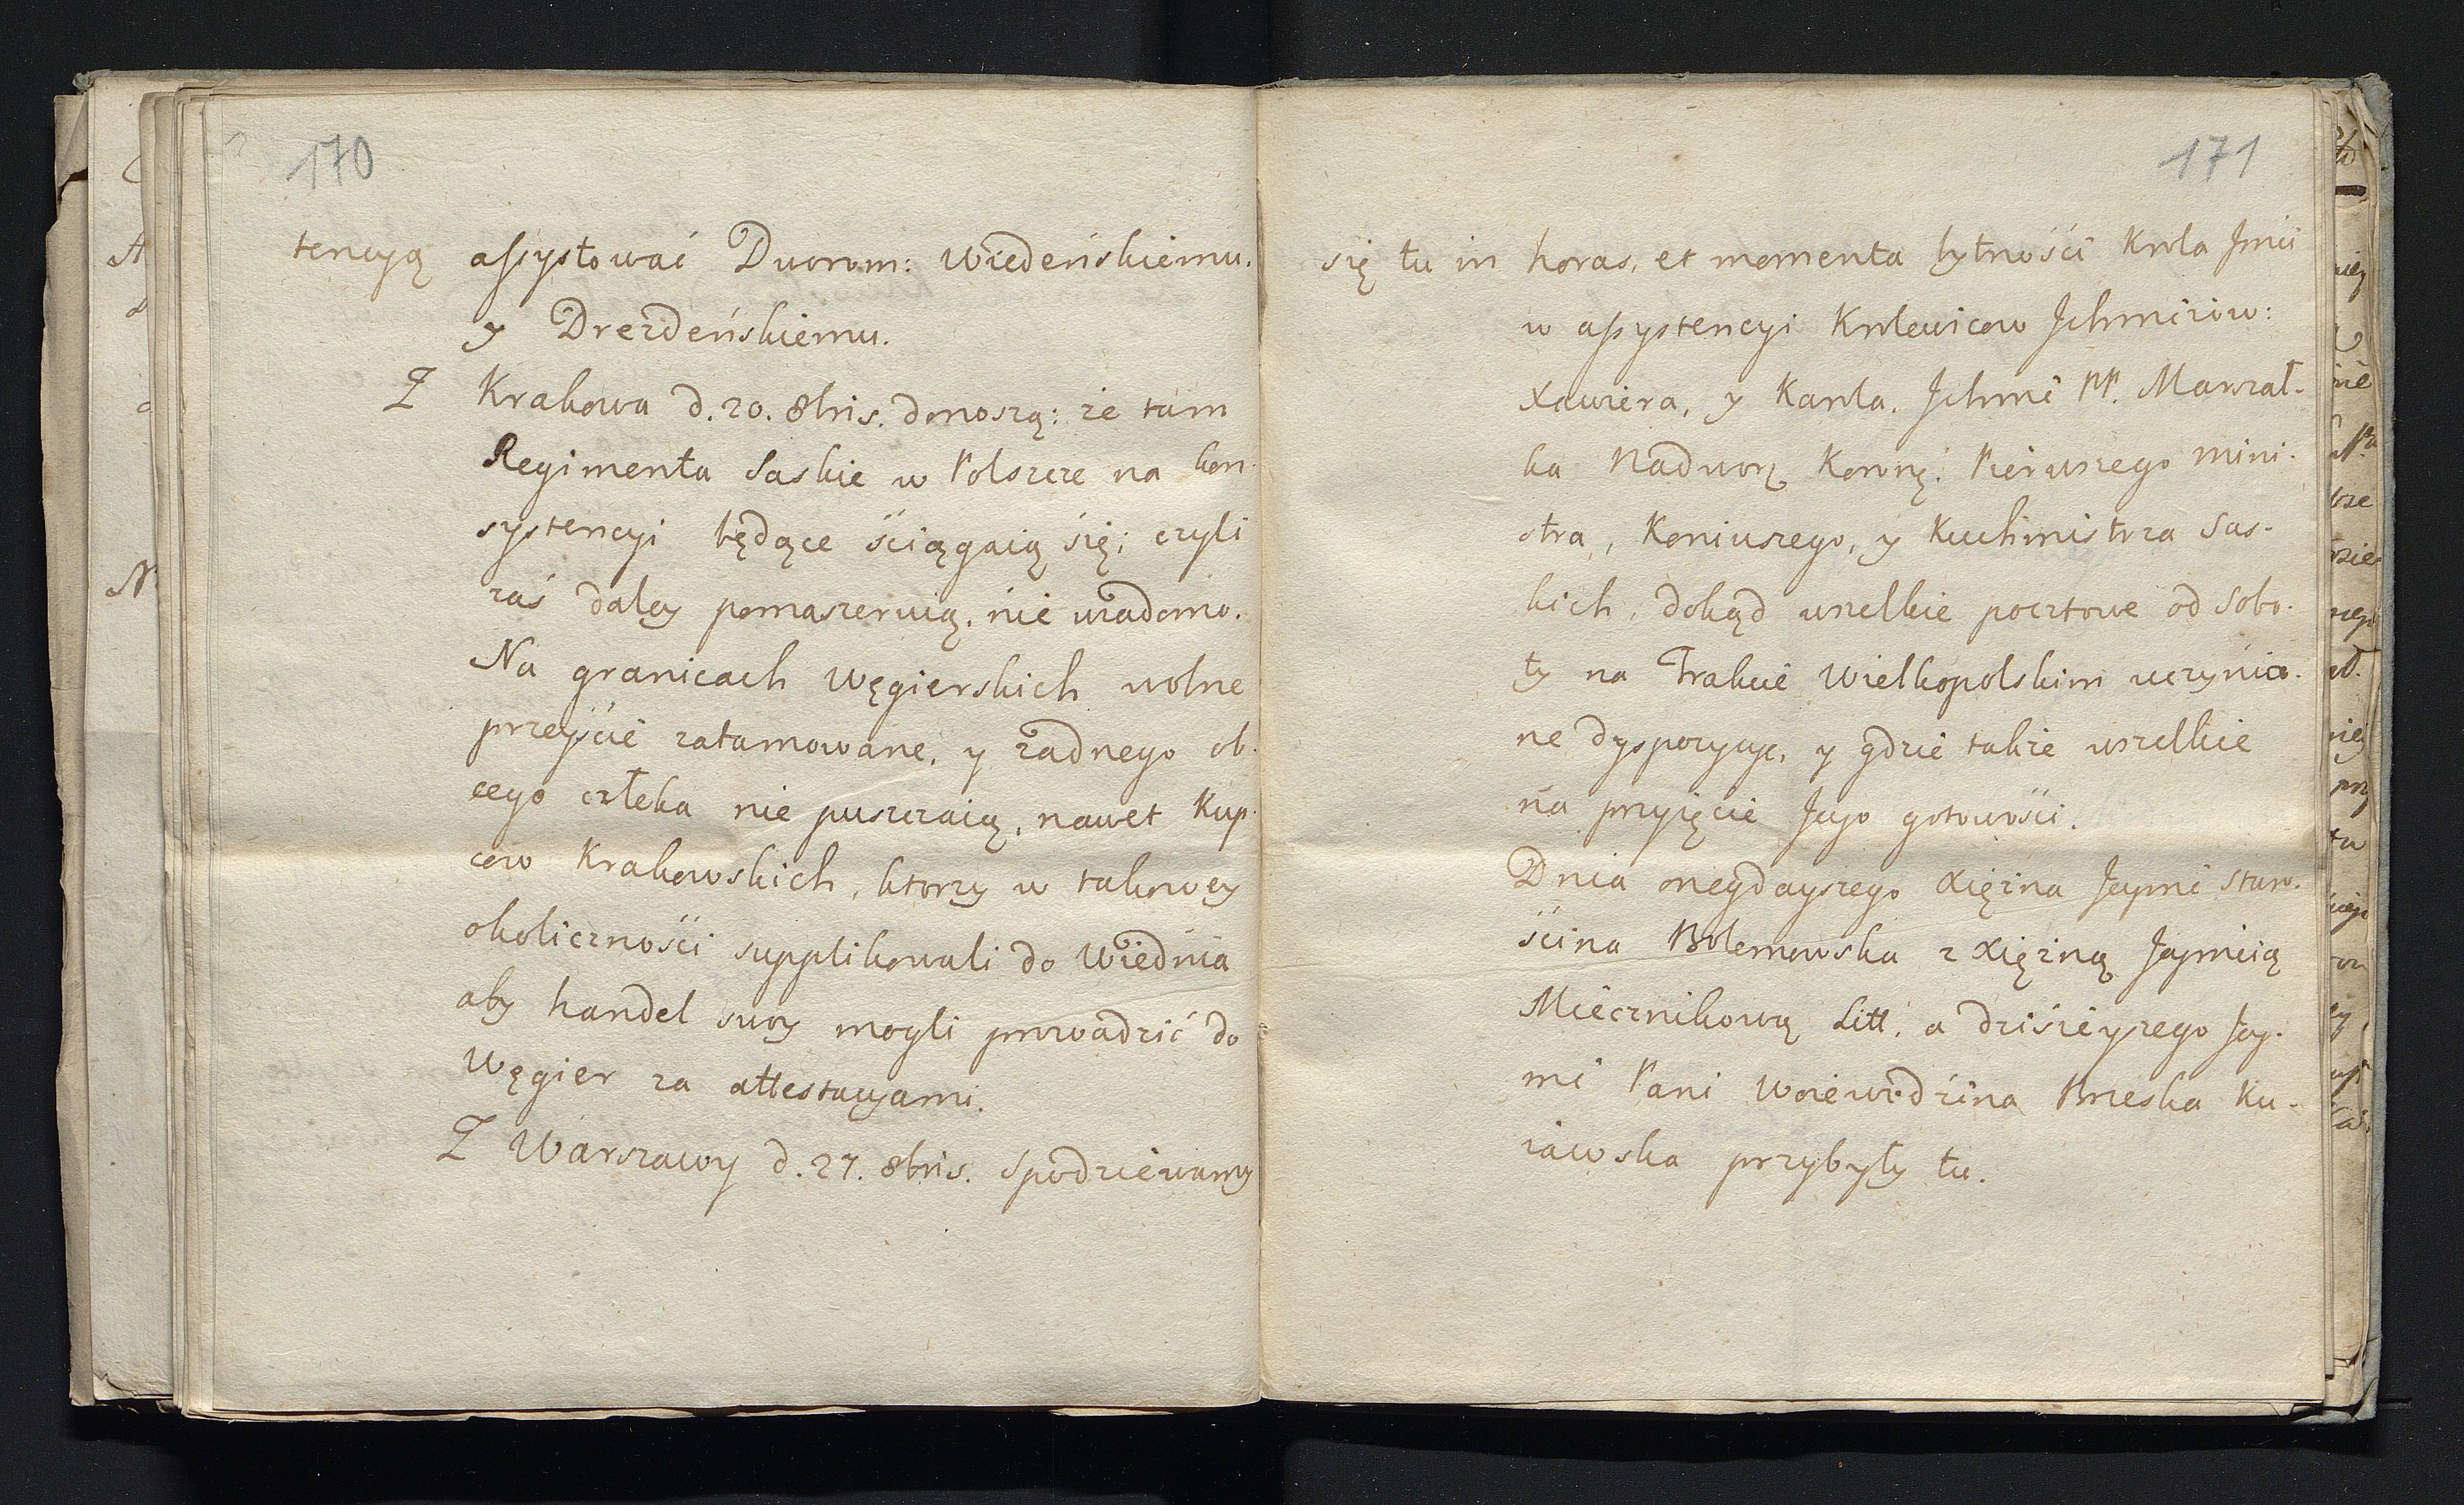 170
tencyą assystować Dworom: Wiedeńskiemu.
y Drezdeńskiemu.
Z Krakowa d. 20. 8bris. donoszą: że tam
Regimenta Saskie w Polszcze na kon-
systencyi będące ściągaią się; czyli
zaś daley pomaszeruią. nie wiadomo.
Na granicach Węgierskich wolne
przejście zatamowane, y żadnego ob-
cego człeka nie puszczaią, nawet Kup-
cow Krakowskich, ktorzy w takowey
okoliczności supplikowali do Wiednia
aby handel swoy mogli prowadzić do
Węgier za attestacyami.
Z Warszawy d. 27. 8bris. Spodziewamy
171
się tu in horas, et momenta bytności Krola Jmci
w assystencyi Krolewicow Jchmciow:
Xawiera, y Karola, Jchmć PP. Marszał-
ka Nadwor. Koron. Pierwszego mini-
stra, Koniuszego, y Kuchmistrza Sas-
kich, dokąd wszelkie pocztowe od Sobo-
ty na Trakcie Wielkopolskim uczynio-
ne dyspozycye, y gdzie także wszelkie
na przyięcie Jego gotowości.
Dnia onegdayszego Xiężna Jeymć Staro-
ścina Bolemowska z Xiężną Jeymcią
Miecznikową Litt. a dzisieyszego Jey-
mć Pani Woiewodzina Brzeska Ku-
iawska przybyły tu.